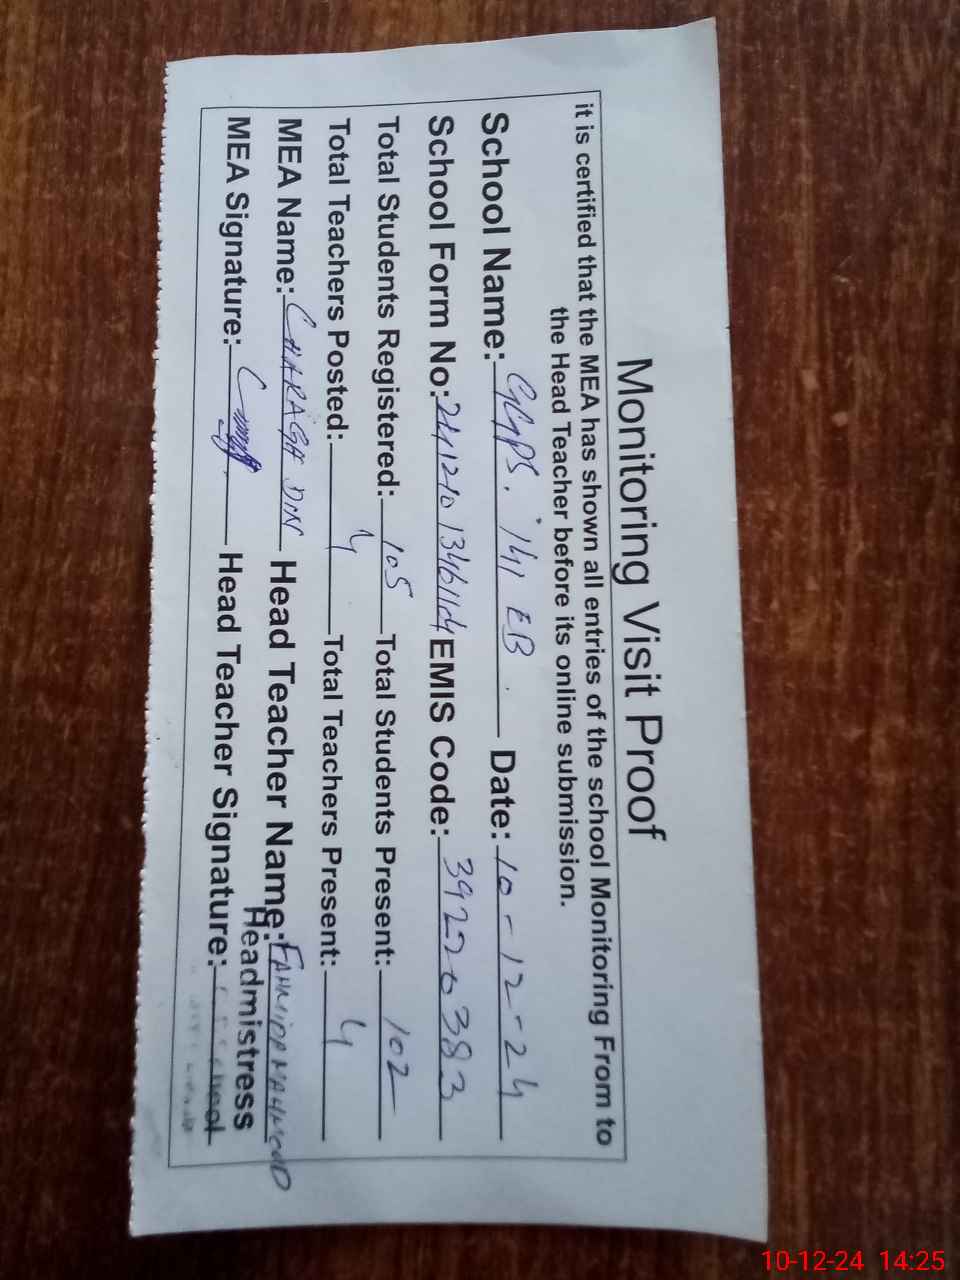 Monitoring Visit Proof
it is certified that the MEA has shown all entries of the school Monitoring From to
the Head Teacher before its online submission.
School Name: GGPS. 141 EB. Date: 10-12-24
School Form No: EMIS Code: 39220383
Total Students Registered: 105 Total Students Present: 102
Total Teachers Posted: 4 Total Teachers Present: 4
MEA Name: CHARAGH DIN Head Teacher Name:
MEA Signature: Head Teacher Signature:
Headmistress
10-12-24 14:25